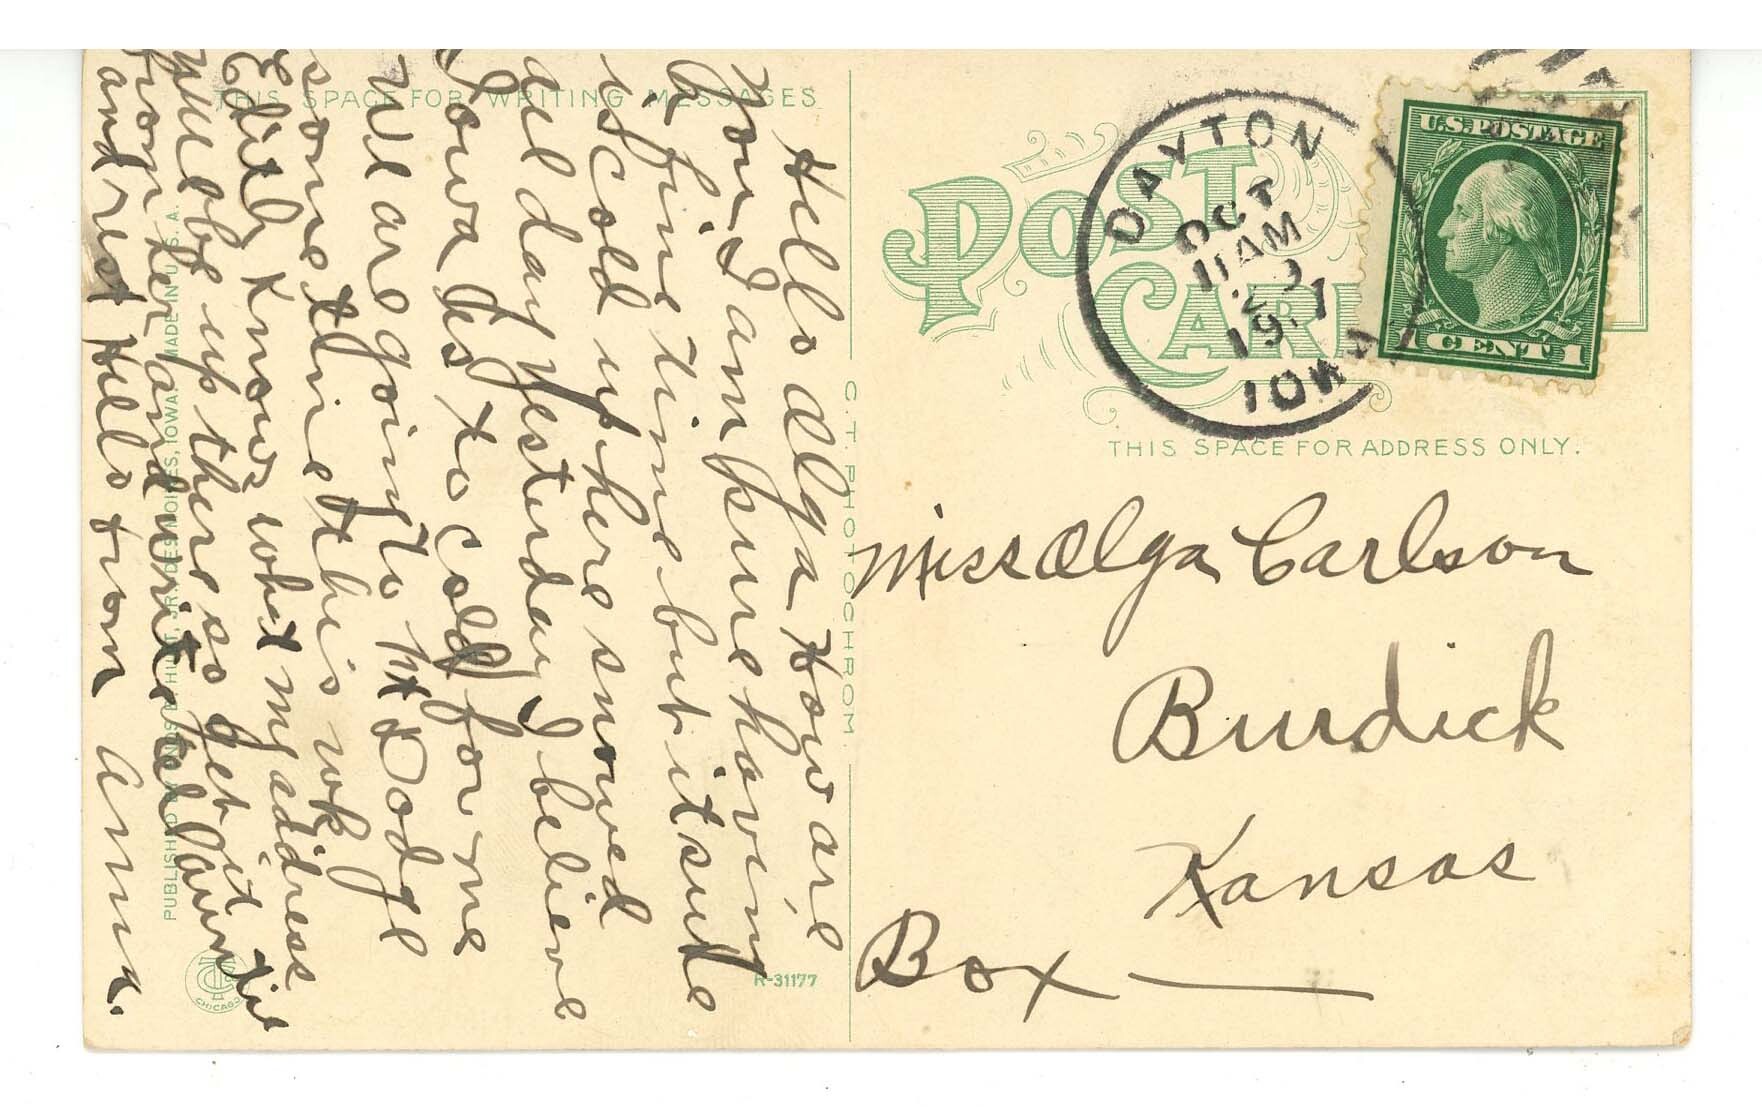 THIS SPACE FOR WRITING MESSAGES
Hello Olga How are
You I am sure having
a fine time but it sure
is cold up here snowed
all day yesterday I believe
Iowa is to cold for me
We are going to Ft Dodge
some time this wk
Edith knows what my address
will be up there so get it
from her and write
and rest Hello from Anna.
PUBLISHED BY ENOS B. HUNT, JR. DES MOINES, IOWA. MADE IN U. S. A.
CHICAGO
R-31177
C. T. PHOTOCHROM.
POST CARD
DAYTON
OCT
11 AM
IOWA
U.S. POSTAGE
1 CENT 1
THIS SPACE FOR ADDRESS ONLY.
Miss Olga Carlson
Burdick
Kansas
Box